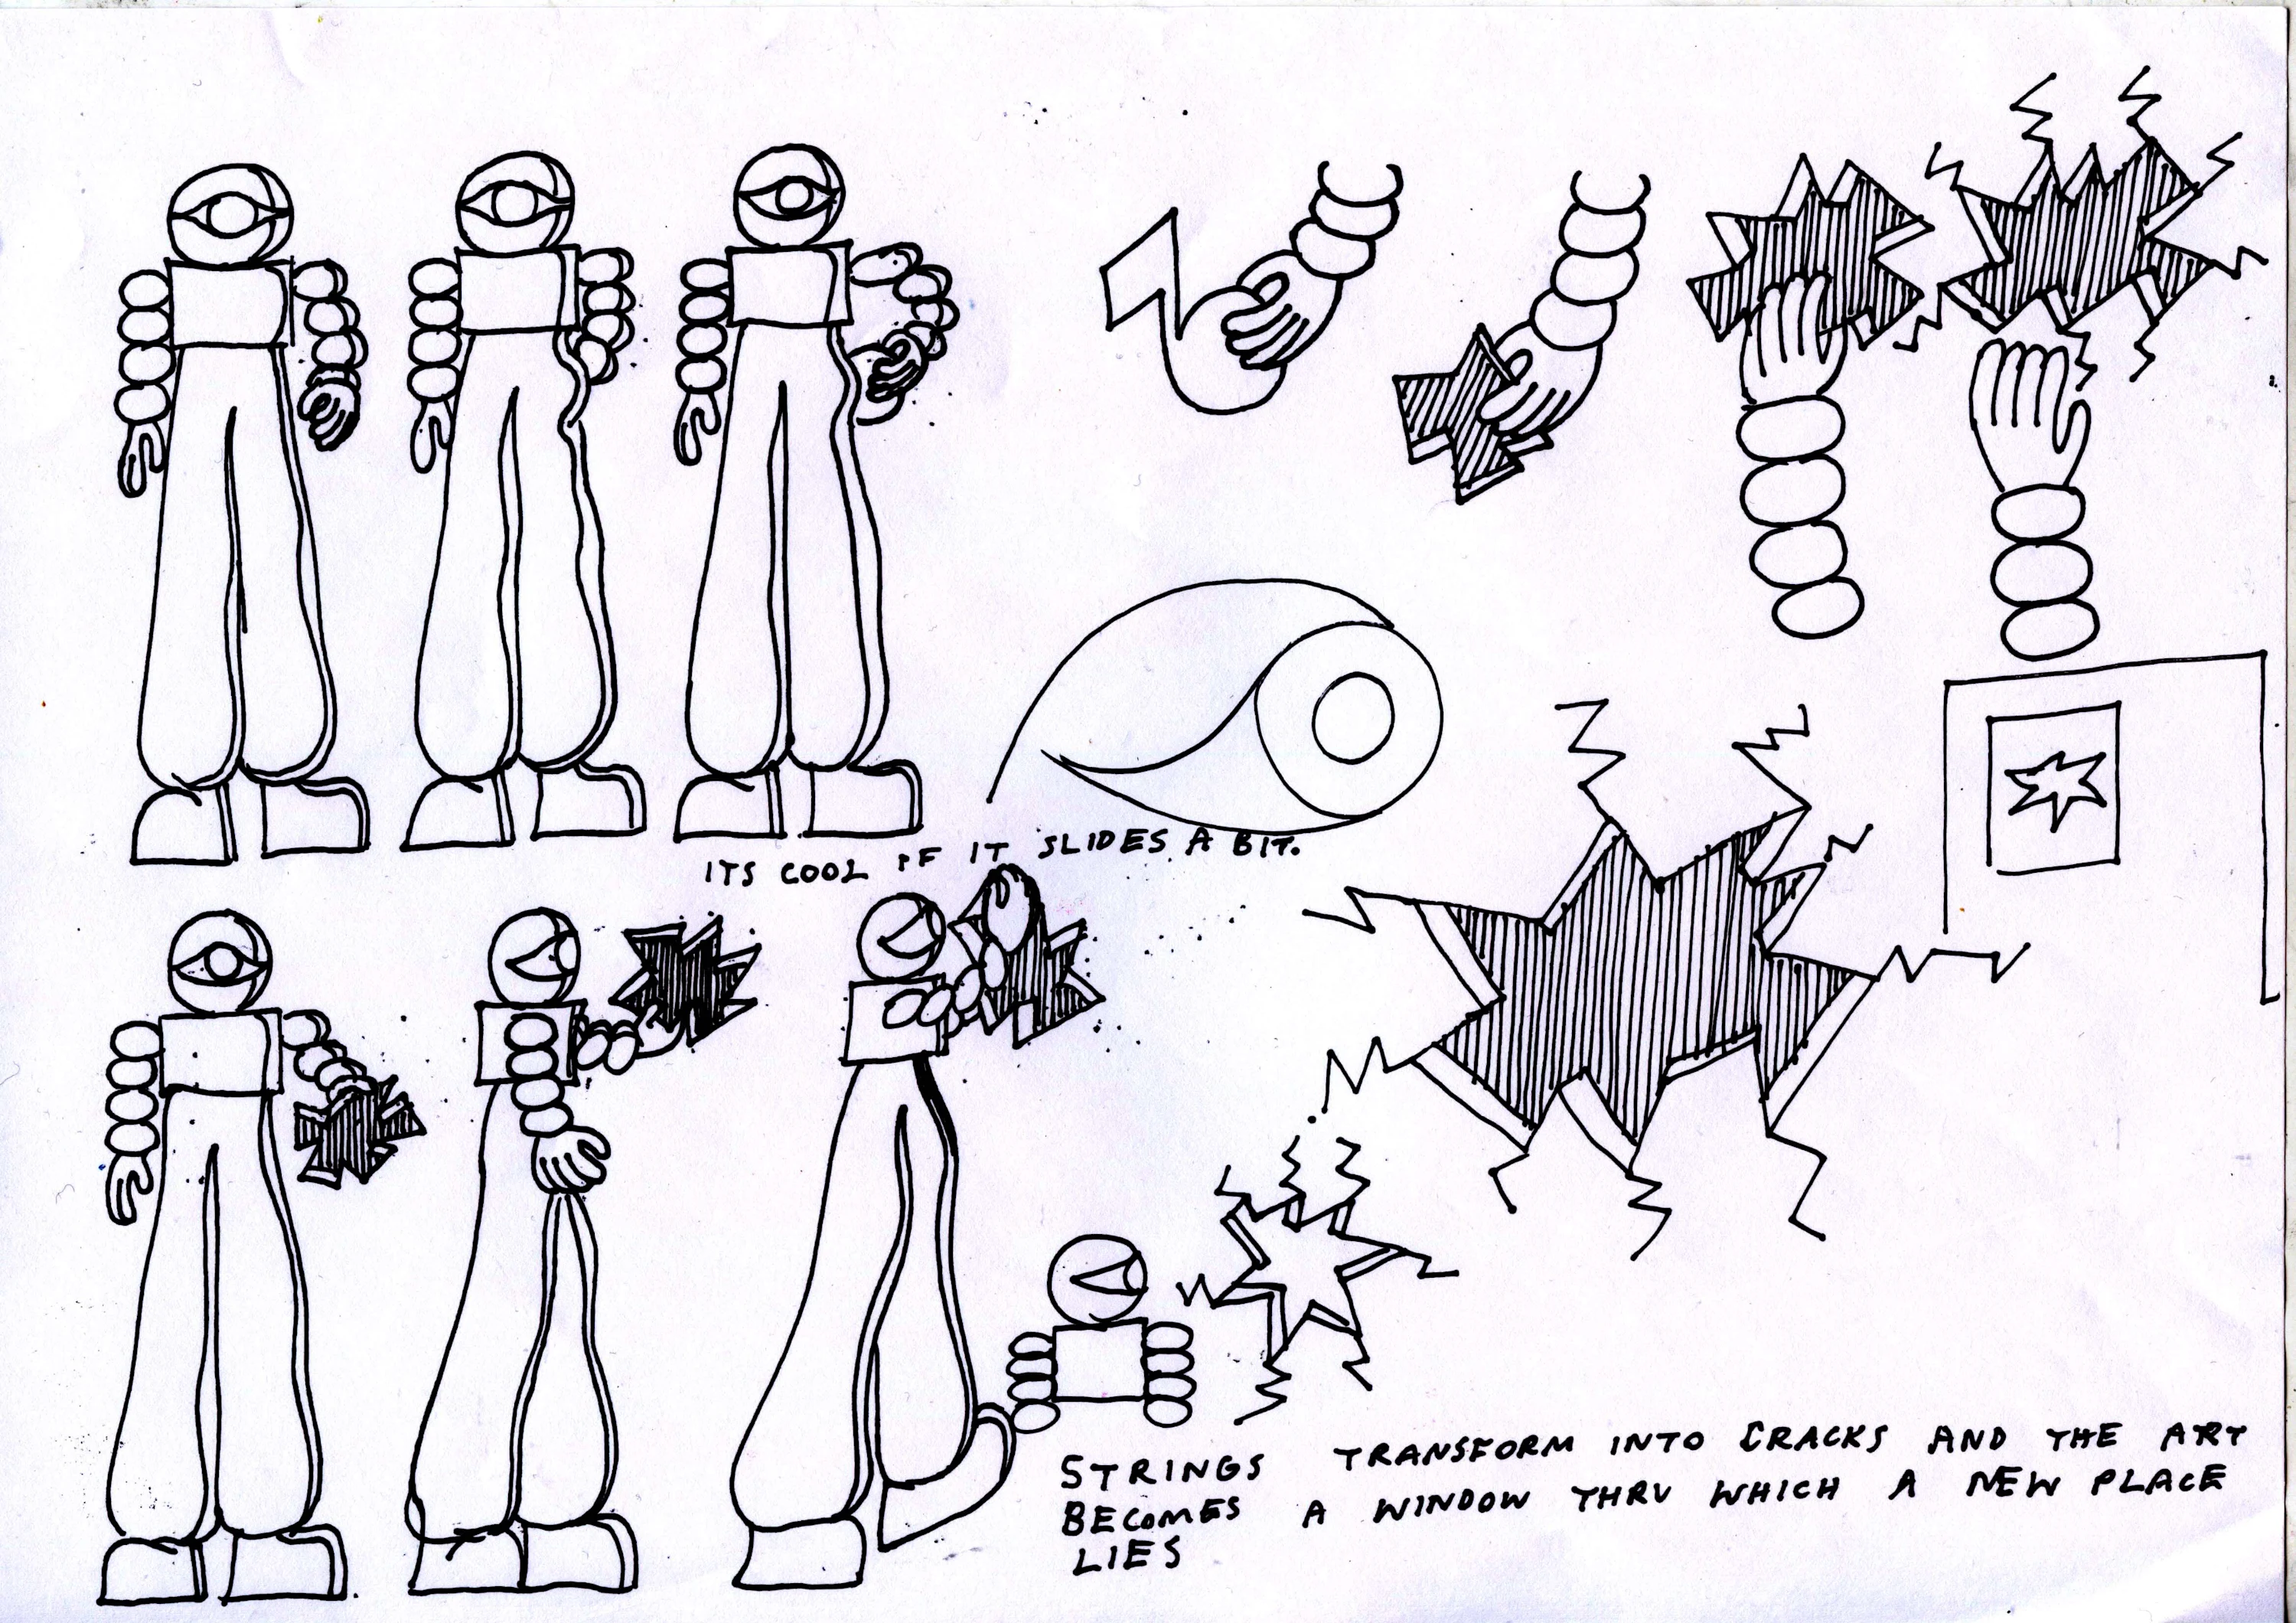 ITS COOL IF IT SLIDES A BIT.
STRINGS TRANSFORM INTO CRACKS AND THE ART
BECOMES A WINDOW THRU WHICH A NEW PLACE
LIES